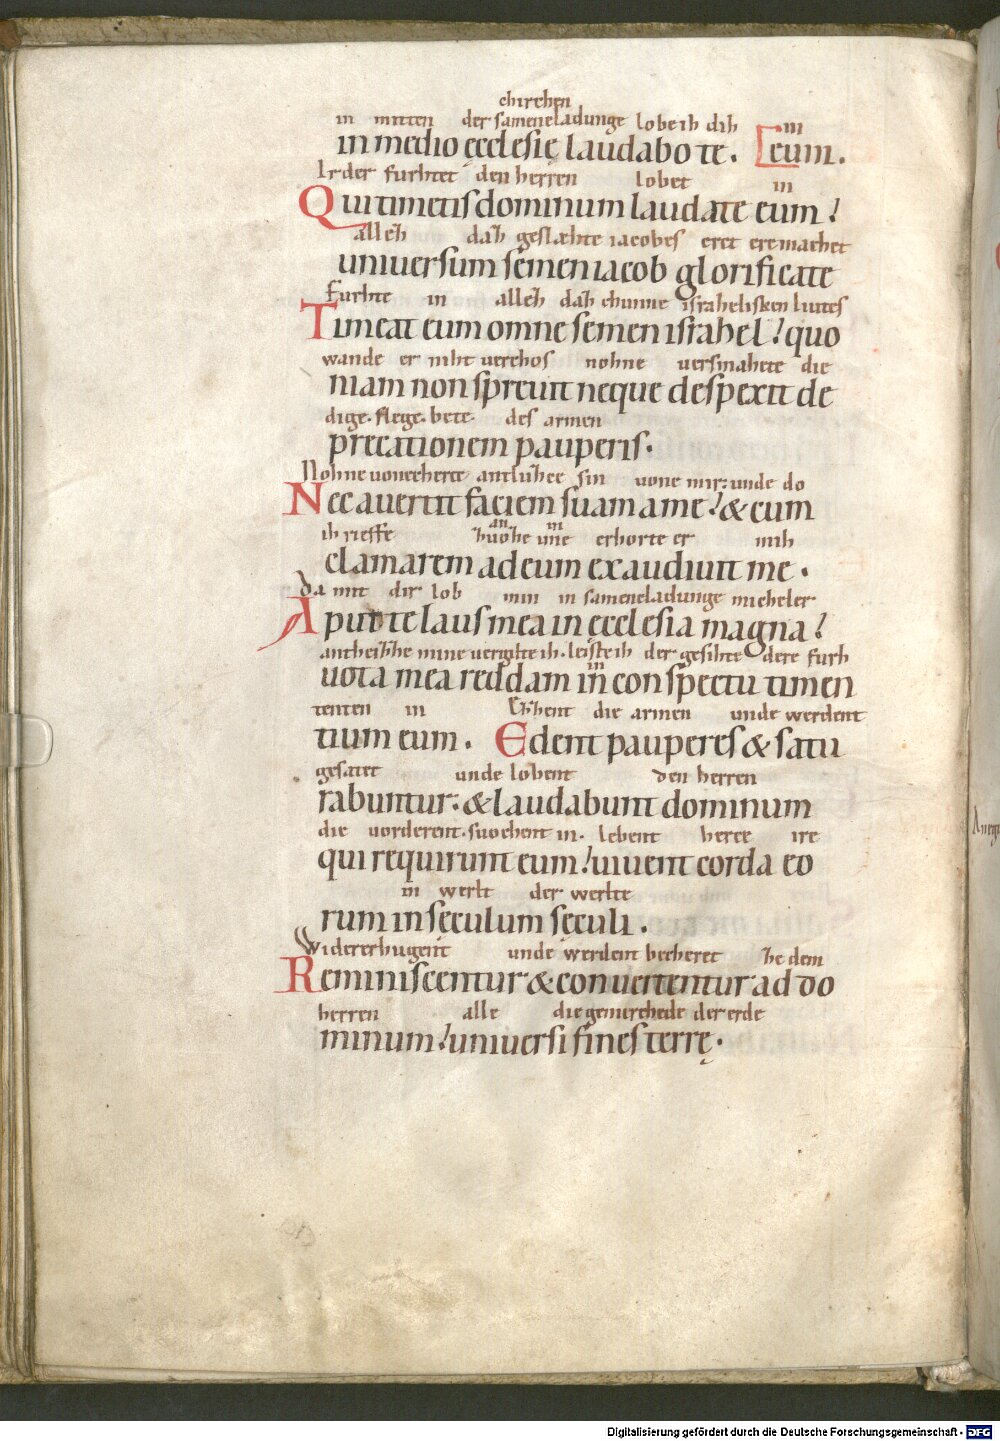 chirchen
in mitten der sameneladunge lobe ih dih in
in medio ęcclesię laudabo te. eum.
Ir der furhtet den herren lobet in
Qui timetis dominum laudate eum!
alleh dah geslæhte iacobes eret ere machet
universum semen iacob glorificate
Furhte in alleh dah chunne israhelisken liutes
Timeat eum omne semen israhel! quo
wande er niht verchos nohne versmahete die
niam non sprevit neque despexit de
dige. flege. bete. des armen
precationem pauperis.
Nohne vonecherte antluhce sin vone mir: unde do
Nec avertit faciem suam a me! & cum
ih rieffe an huohe ime in erhorte er mih
clamarem ad eum exaudivit me.
Da mit dir lob min in sameneladunge micheler
Aput te laus mea in ęcclesia magna!
antheihhe mine vergilte ih. leiste ih in der gesihte dere furh
vota mea reddam in conspectu timen
tenten in Ehhent die armen unde werdent
tium eum. Edent pauperes & satu
gesatet unde lobent den herren
rabuntur: & laudabunt dominum
die vorderent. suochent in. lebent herce ire
qui requirunt eum! vivent corda eo
in werlt der werlte
rum in sęculum sęculi.
Widererhugent unde werdent becheret he dem
Reminiscentur & convertentur ad do
herren alle die gemerchede der erde
minum! universi fines terrę.
Digitalisierung gefördert durch die Deutsche Forschungsgemeinschaft - DFG